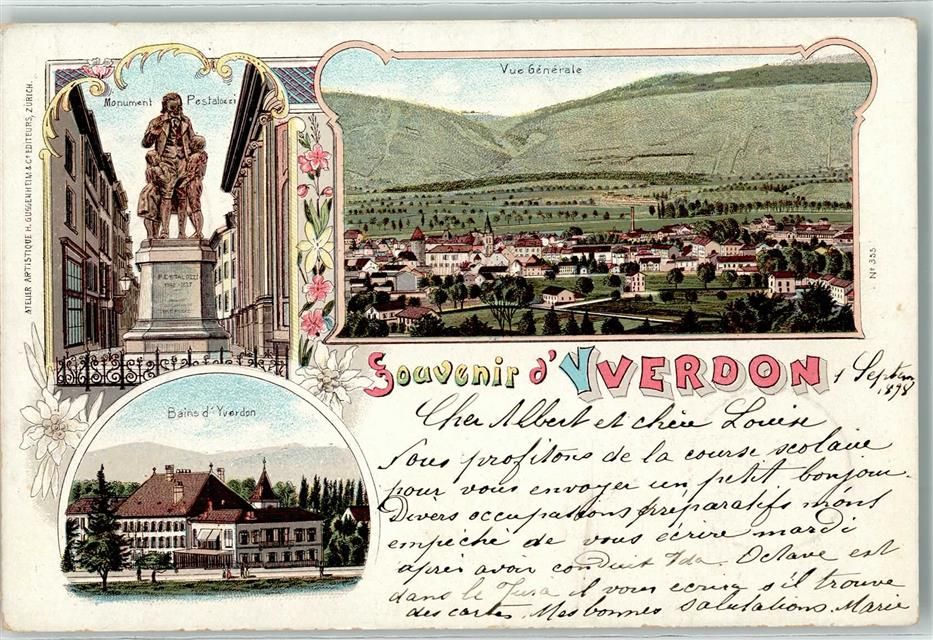 ATELIER ARTISTIQUE H. GUGGENHEIM & Cº EDITEURS, ZÜRICH.
Monument Pestalozzi
PESTALOZZI
Vue Générale
Nº 355
Souvenir d'YVERDON
1 Septem
1898
Bains d'Yverdon
Cher Albert et chère Louise
Nous profitons de la course scolaire
pour vous envoyer un petit bonjour.
Divers occupations préparatifs mont
empéché de vous écrire mardi
après avoir conduit Ida. Octave est
dans le Jura il vous écrira s'il trouve
des cartes. Mes bonnes salutations. Marie